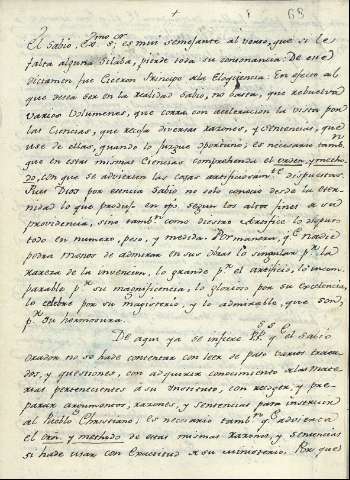 +
68
El Sabio, Exmo Sor, es mui semejante al verso, que si le
falta alguna Silaba, pierde toda su consonancia. De este
dictamen fue Ciceron Principe de la Eloquencia: En efecto al
que desea ser en la realidad Sabio, no basta, que rebuelva
varios Volumenes, que corra con aceleracion la vista por
las Ciencias, que recoja diversas razones, y sentencias, que
use de ellas, quando lo juzgue oportuno; es necesario tambn
que en estas mismas Ciencias comprehenda el orden, y metho
do, con que se advierten las cosas artificiosamte dispuestas.
Pues Dios por esencia Sabio no solo conocio desde la eter
nidad lo que produjo en tpõ. segun los altos fines de su
providencia, sino tambn como diestro Artifice lo dispuso
todo en numero, peso, y medida. Por manera, qe nadie
podra menos de admirar en sus obras lo singular pr la
rareza de la invencion, lo grande pr el artificio, lo incom
parable pr su magnificencia, lo glorioso por su excelencia,
lo celebre por su magisterio, y lo admirable, que son,
pr su hermosura.
De aqui ya se infiere qe el Sabio
orador no se hade contentar con leer de paso varios trata
dos, y questiones, con adquirir conocimiento de las mate
rias pertenecientes a su Instituto, con recoger, y pre-
parar argumentos, razones, y sentencias para instruir
al Pueblo Christiano; es necesario tambn qe advierta
el orn. y methodo de estas mismas razones, y sentencias
si hade usar con exactitud de su ministerio. Por que